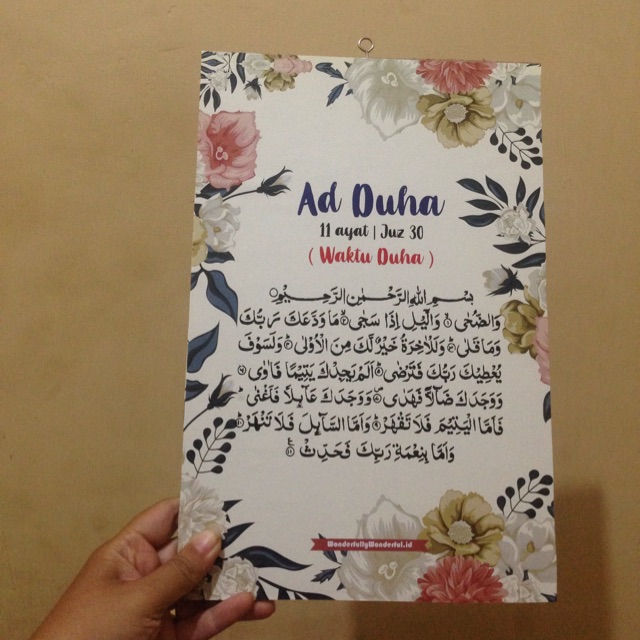 Ad Duha
11 ayat | Juz 30
( Waktu Duha )
بِسْمِ اللهِ الرَّحْمٰنِ الرَّحِيْمِ
وَالضُّحٰى ۙ۝١ وَالَّيْلِ اِذَا سَجٰى ۙ۝٢ مَا وَدَّعَكَ رَبُّكَ
وَمَا قَلٰى ۗ۝٣ وَلَلْاٰخِرَةُ خَيْرٌ لَّكَ مِنَ الْاُوْلٰى ۗ۝٤ وَلَسَوْفَ
يُعْطِيْكَ رَبُّكَ فَتَرْضٰى ۗ۝٥ اَلَمْ يَجِدْكَ يَتِيْمًا فَاٰوٰى ۖ۝٦
وَوَجَدَكَ ضَاۤلًّا فَهَدٰى ۖ۝٧ وَوَجَدَكَ عَاۤىِٕلًا فَاَغْنٰى ۗ۝٨
فَاَمَّا الْيَتِيْمَ فَلَا تَقْهَرْ ۗ۝٩ وَاَمَّا السَّاۤىِٕلَ فَلَا تَنْهَرْ ۗ۝١٠
وَاَمَّا بِنِعْمَةِ رَبِّكَ فَحَدِّثْ ࣖ۝١١
WonderfullyWonderful.id